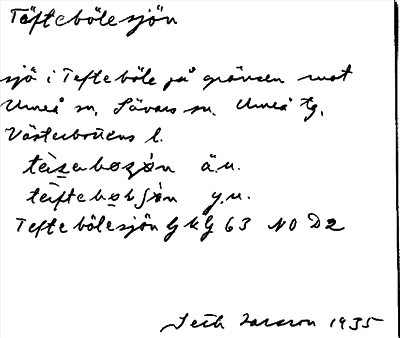 Täfteböle sjön
sjö i Tefteböle på gränsen mot
Umeå sn, Sävars sn. Umeå tg,
Västerbottens l.
ä.u.
y.u.
Teftebölesjön GKG 63 NO D2
Seth Larsson 1935